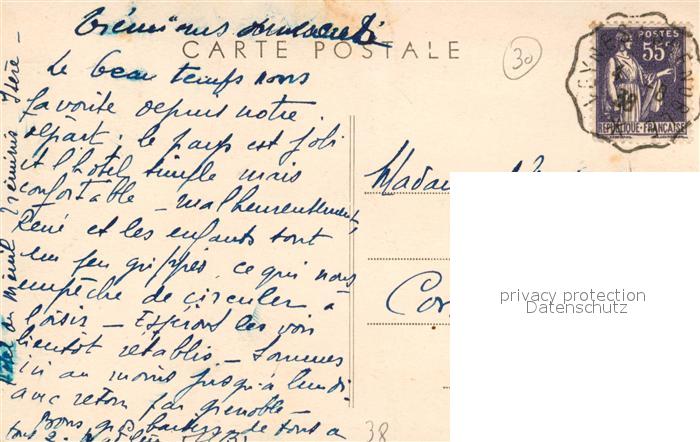 Tréminis
CARTE POSTALE
30
POSTES
55c
RÉPUBLIQUE FRANÇAISE
Le beau temps nous
favorise depuis notre
départ; le pays est joli
et l'hôtel simple mais
confortable — malheureusement,
René et les enfants sont
un peu grippés, ce qui nous
empêche de circuler à
loisir — Espérons les voir
bientôt rétablis — Sommes
ici au moins jusqu'à lundi
avec retour par Grenoble —
Bons
tous 2
Tréminis Isère —
Madame
privacy protection
Datenschutz
38